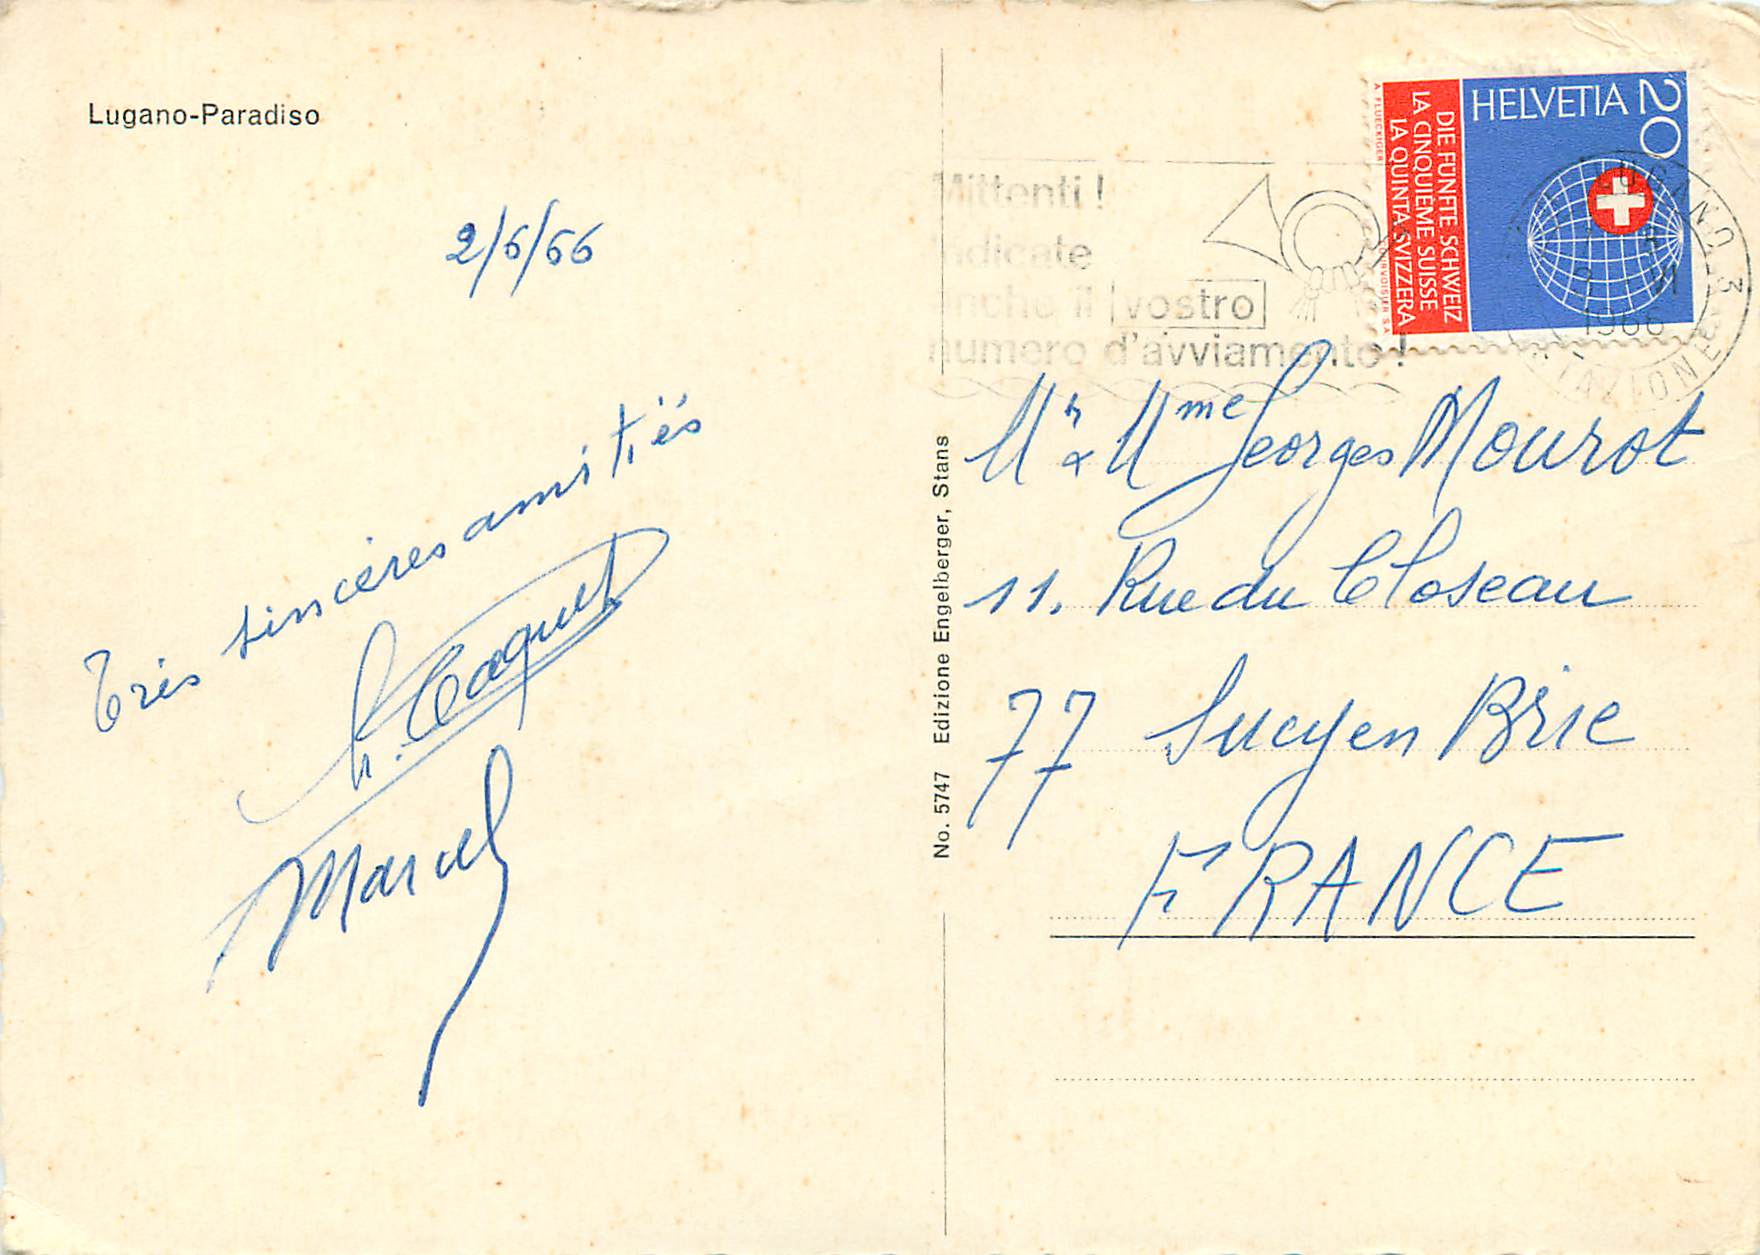 Lugano-Paradiso
2/6/66
Très sincères amitiés
Marcel
No. 5747 Edizione Engelberger, Stans
Mittenti !
indicate
anche il vostro
numero d'avviamento !
HELVETIA 20
DIE FÜNFTE SCHWEIZ
LA CINQUIEME SUISSE
LA QUINTA SVIZZERA
A FLUECKIGER
COURVOISIER S.A.
LUGANO 3
1966
STAZIONE
Mr & Mme Georges Mourot
11. Rue du Closeau
77 Sucy en Brie
FRANCE